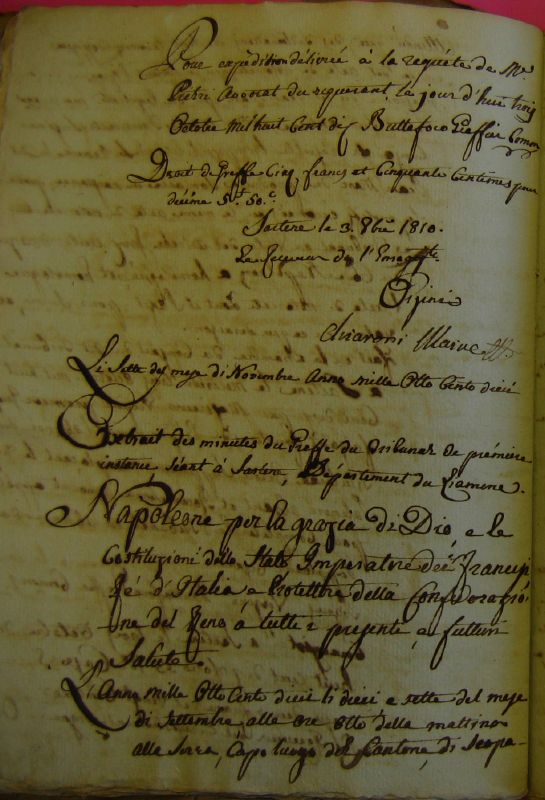 Pour expédition délivrée à la requéte de Mr
Pietri avocat du riquerant, le jour d'hui trois
Octobre mil huit Cent dix Buttafoco Greffier Comm
Droit de Greffe Cinq francs et Cinquante Centimes pour
décime 5.f 50.c
Sartene le 3. 8bre 1810.
Le Receveur de l'Enregte.
Pigini
Chiaroni Maire
Li Sette del mese di Novembre Anno mille Otto Cento dieci
Extrait des minutes du Greffe du tribunal de prémiere
instance séant à Sartene, Département du Liamone.
Napoleone per la grazia di Dio, e le
Costituzioni dello Stato Imperatore dei Francesi
Ré d'Italia e Protettore della Confederazio
ne del Reno à tutti i presenti, e futturi
Salute.
L'Anno mille Otto Cento dieci li dieci e sette del mese
di Settembre alle ore otto della mattina
alla Serra, Capo luogo del Cantone, di Scopa-